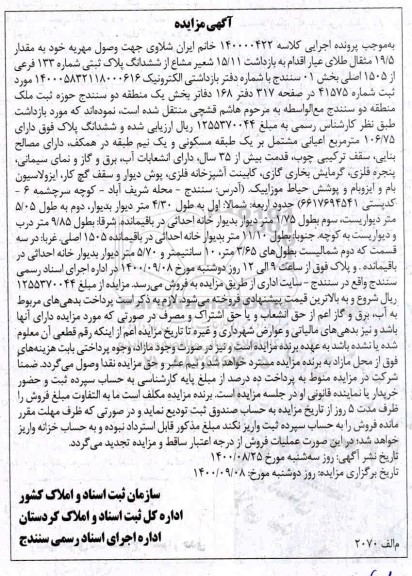 آگهی مزایده
به‌موجب پرونده اجرایی کلاسه ۱۴۰۰۰۰۴۲۲ خانم ایران شلاوی جهت وصول مهریه خود به مقدار
۱۹/۵ مثقال طلای عیار اقدام به بازداشت ۱۵/۱۱ شعیر مشاع از ششدانگ پلاک ثبتی شماره ۱۳۳ فرعی
از ۱۵۰۵ اصلی بخش ۰۱ سنندج با شماره دفتر بازداشتی الکترونیک ۱۴۰۰۰۵۸۳۲۱۱۸۰۰۰۶۱۶ مورد
ثبت شماره ۴۱۵۷۵ در صفحه ۳۱۷ دفتر ۱۶۸ دفاتر بخش یک منطقه دو سنندج حوزه ثبت ملک
منطقه دو سنندج مع‌الواسطه به مرحوم هاشم قشچی منتقل شده است، نموده‌اند که مورد بازداشت
طبق نظر کارشناس رسمی به مبلغ ۱۲۵۵۳۷۰۰۴۴ ریال ارزیابی شده و ششدانگ پلاک فوق دارای
۱۰۶/۷۵ مترمربع اعیانی مشتمل بر یک طبقه مسکونی و یک نیم طبقه در همکف، دارای مصالح
بنایی، سقف ترکیبی چوب، قدمت بیش از ۳۵ سال، دارای انشعابات آب، برق و گاز و نمای سیمانی،
پنجره فلزی، گرمایش بخاری گازی، کابینت آشپزخانه فلزی، پوش دیوار و سقف گچ کار، ایزولاسیون
بام و ایزوبام و پوشش حیاط موزاییک. (آدرس: سنندج - محله شریف آباد - کوچه سرچشمه ۶ -
کدپستی ۶۶۱۷۶۹۴۵۴۱) حدود اربعه: شمالا: اول به طول ۴/۳۰ متر دیوار بدیوار، دوم به طول ۵/۰۵
متر دیواریست، سوم بطول ۱/۷۵ متر دیوار بدیوار خانه احداثی در باقیمانده. شرقا: بطول ۹/۸۵ متر درب
و دیواریست به کوچه. جنوبا: بطول ۱۱/۱۰ متر بدیوار خانه احداثی در باقیمانده ۱۵۰۵ اصلی. غربا: در سه
قسمت که دوم شمالیست بطول‌های ۳/۶۵ متر، ۱۰۰ سانتیمتر و ۵/۷۰ متر دیوار بدیوار خانه احداثی در
باقیمانده. و پلاک فوق از ساعت ۹ الی ۱۲ روز دوشنبه مورخ ۱۴۰۰/۰۹/۰۸ در اداره اجرای اسناد رسمی
سنندج واقع در سنندج - سایت اداری از طریق مزایده به فروش می‌رسد. مزایده از مبلغ ۱۲۵۵۳۷۰۰۴۴
ریال شروع و به بالاترین قیمت پیشنهادی فروخته می‌شود. لازم به ذکر است پرداخت بدهی‌های مربوط
به آب، برق و گاز اعم از حق انشعاب و یا حق اشتراک و مصرف در صورتی که مورد مزایده دارای آنها
باشد و نیز بدهی‌های مالیاتی و عوارض شهرداری و غیره تا تاریخ مزایده اعم از اینکه رقم قطعی آن معلوم
شده یا نشده باشد به عهده برنده مزایده است و نیز در صورت وجود مازاد، وجوه پرداختی بابت هزینه‌های
فوق از محل مازاد به برنده مزایده مسترد خواهد شد و نیم عشر و حق مزایده نقدا وصول می‌گردد. ضمنا
شرکت در مزایده منوط به پرداخت ده درصد از مبلغ پایه کارشناسی به حساب سپرده ثبت و حضور
خریدار یا نماینده قانونی او در جلسه مزایده است. برنده مزایده مکلف است ما به التفاوت مبلغ فروش را
ظرف مدت ۵ روز از تاریخ مزایده به حساب صندوق ثبت تودیع نماید و در صورتی که ظرف مهلت مقرر
مانده فروش را به حساب سپرده ثبت واریز نکند مبلغ مذکور قابل استرداد نبوده و به حساب خزانه واریز
خواهد شد؛ در این صورت عملیات فروش از درجه اعتبار ساقط و مزایده تجدید می‌گردد.
تاریخ نشر آگهی: روز سه‌شنبه مورخ ۱۴۰۰/۰۸/۲۵
تاریخ برگزاری مزایده: روز دوشنبه مورخ: ۱۴۰۰/۰۹/۰۸
سازمان ثبت اسناد و املاک کشور
اداره کل ثبت اسناد و املاک کردستان
اداره اجرای اسناد رسمی سنندج
م‌الف ۲۰۷۰